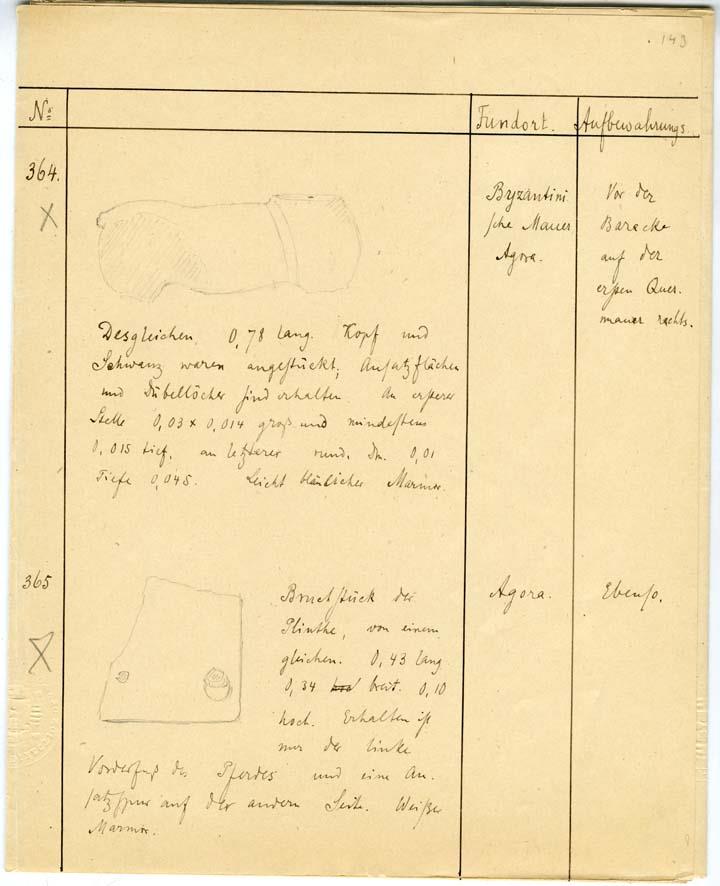 143
Nº Fundort. Aufbewahrungs.
364.
Byzantini
sche Mauer
Agora.
Vor der
Baracke
auf der
ersten Quer.
mauer rechts.
Desgleichen. 0,78 lang. Kopf und
Schwanz waren angestückt; Ansatzflächen
und Dübellöcher sind erhalten. An ersterer
Stelle 0,03 x 0,014 groß und mindestens
0,015 tief, an letzterer rund. Dm. 0,01
Tiefe 0,045. Leicht bläulicher Marmor.
365
Bruchstück der
Plinthe, von einem
gleichen. 0,43 lang
0,34 breit. 0,10
hoch. Erhalten ist
nur der linke
Vorderfuß des Pferdes und eine An.
satzspur auf der andern Seite. Weißer
Marmor.
Agora.
Ebenso.